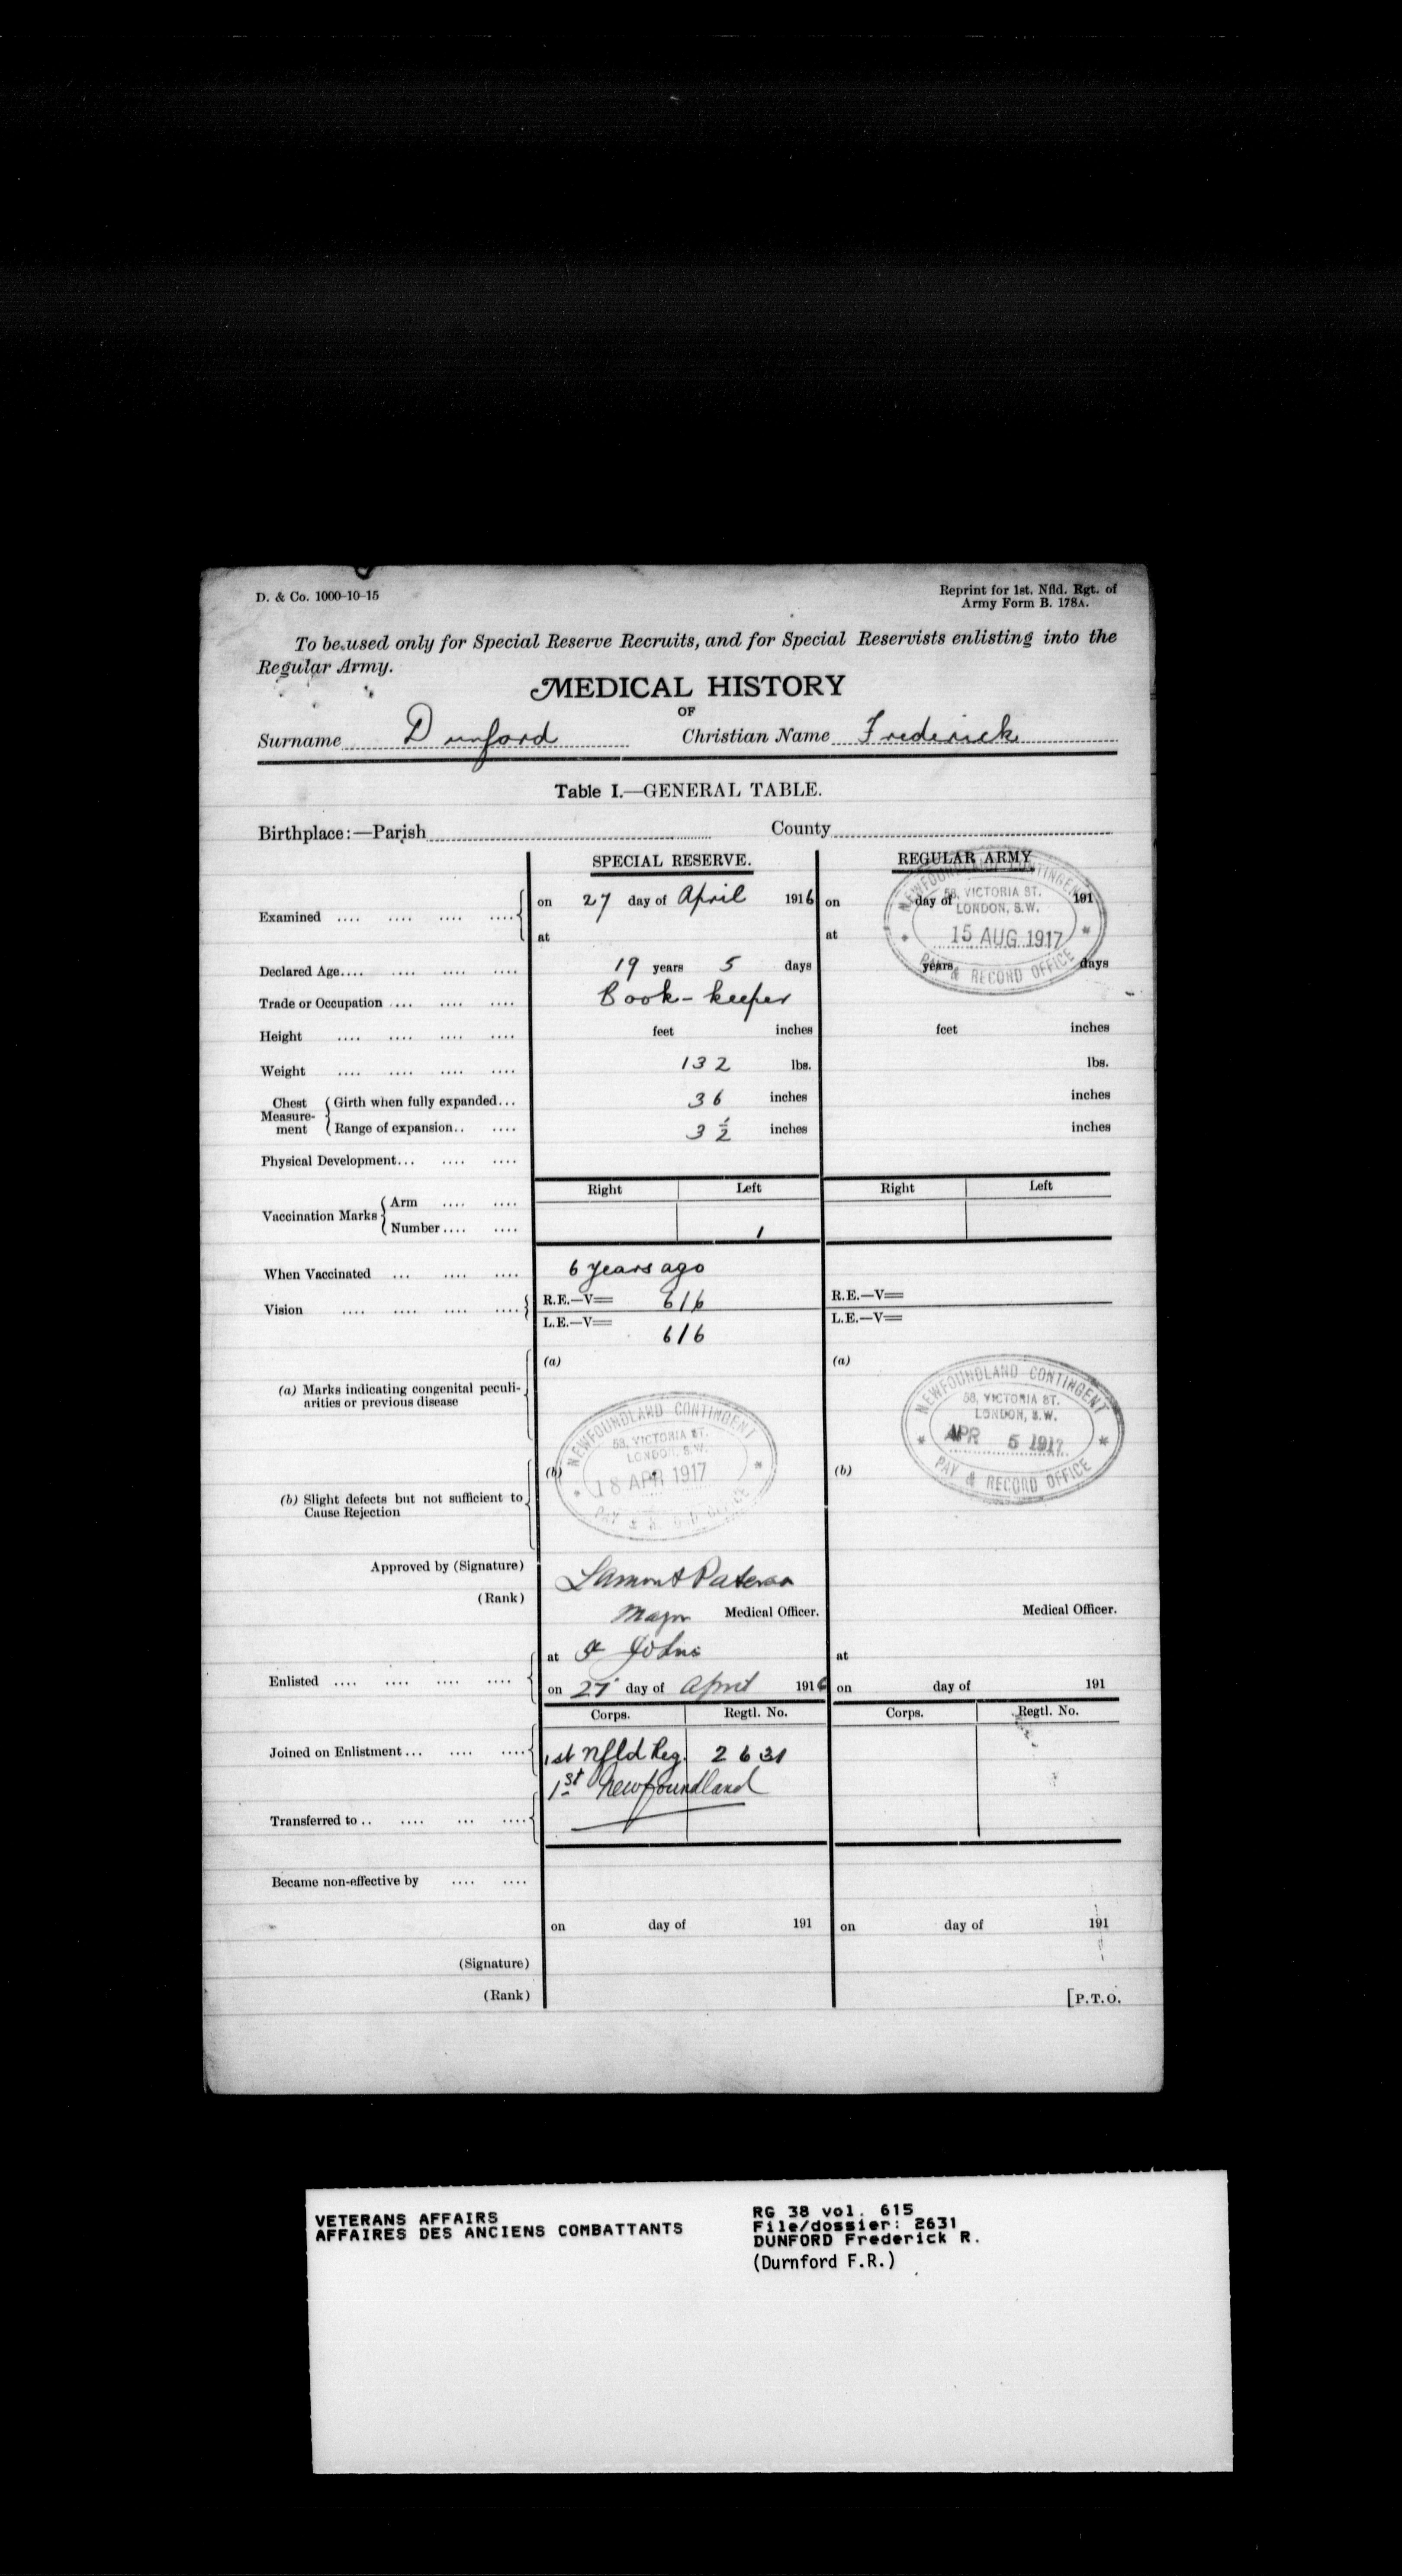 D. & Co. 1000-10-15
Reprint for 1st. Nfld. Rgt. of
Army Form B. 178A.
To be used only for Special Reserve Recruits, and for Special Reservists enlisting into the
Regular Army.
MEDICAL HISTORY
OF
Surname Dunford Christian Name Frederick
Table I.—GENERAL TABLE.
Birthplace:—Parish County
SPECIAL RESERVE. REGULAR ARMY
Examined .... .... .... .... on 27 day of April 1916 on day of 191
at at
NEWFOUNDLAND CONTINGENT
58, VICTORIA ST.
LONDON, S.W.
15 AUG 1917
PAY & RECORD OFFICE
Declared Age.... .... .... .... 19 years 5 days years days
Trade or Occupation .... .... .... Book-keeper
Height .... .... .... .... feet inches feet inches
Weight .... .... .... .... 132 lbs. lbs.
Chest Measure-ment Girth when fully expanded... 36 inches inches
Range of expansion.. .... 3 1/2 inches inches
Physical Development... .... ....
Right Left Right Left
Vaccination Marks Arm .... ....
Number .... .... 1
When Vaccinated ... .... .... 6 years ago
Vision .... .... .... .... R.E.—V= 6/6 R.E.—V=
L.E.—V= 6/6 L.E.—V=
(a) (a)
(a) Marks indicating congenital peculi-
arities or previous disease
NEWFOUNDLAND CONTINGENT
58, VICTORIA ST.
LONDON, S.W.
APR 5 1917
PAY & RECORD OFFICE
NEWFOUNDLAND CONTINGENT
58, VICTORIA ST.
LONDON, S.W.
18 APR 1917
(b) (b)
(b) Slight defects but not sufficient to
Cause Rejection
Approved by (Signature) Lamont Paterson
(Rank) Major Medical Officer. Medical Officer.
at St Johns at
Enlisted .... .... .... .... on 27 day of April 1916 on day of 191
Corps. Regtl. No. Corps. Regtl. No.
Joined on Enlistment... .... .... 1st Nfld Reg. 2631
1st Newfoundland
Transferred to .. .... ... ....
Became non-effective by .... ....
on day of 191 on day of 191
(Signature)
(Rank)
[P.T.O.
VETERANS AFFAIRS
AFFAIRES DES ANCIENS COMBATTANTS
RG 38 vol. 615
File/dossier: 2631
DUNFORD Frederick R.
(Durnford F.R.)